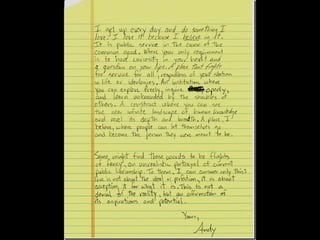 I get up every day and do something I
love! I love it because I believe in it.
It is public service in the cause of the
common good. Where your only requirement
is to have curiosity in your heart and
a question on your lips. A place that fights
for service for all, regardless of your station
in life or ideologies. An institution, where
you can explore freely, inquire openly,
and leave unhounded by the shackles of
others. A construct where you can see
the new infinite landscape of human knowledge
and feel its depth and breadth. A place I
believe, where people can let themselves go
and become the person they were meant to be.
Some might find these words to be flights
of fancy, an surrealistic portrayal of current
public librarianship. To them, I can comment only this:
live is not about the ideal of perfection, it is about
accepting it for what it is. This is not a
denial to the reality, but an affirmation of
its aspirations and potential.
Yours,
Andy